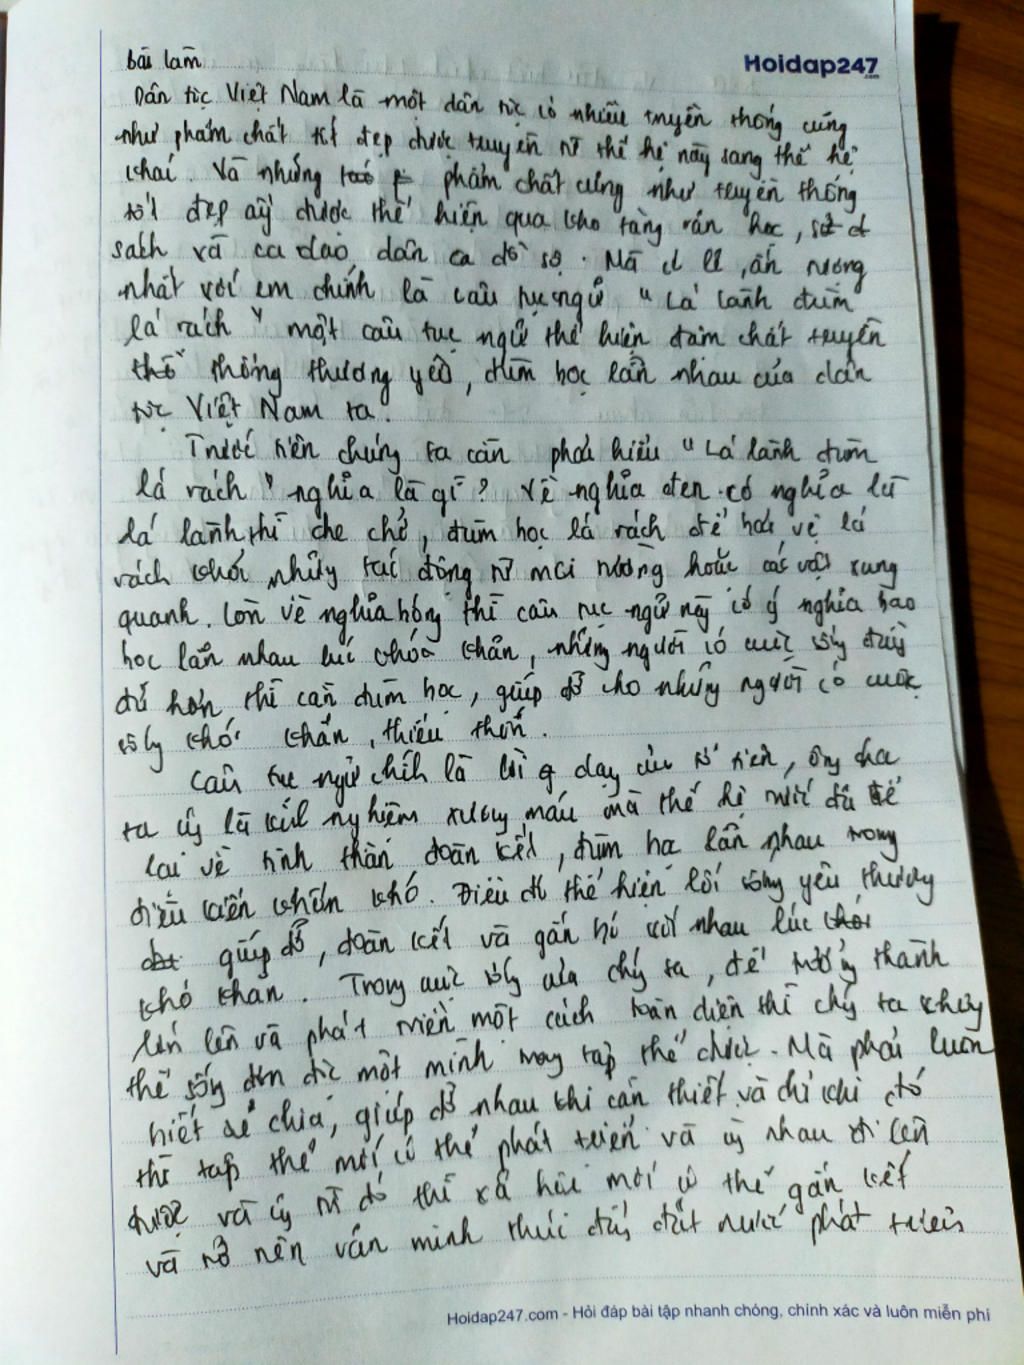 bài làm
Hoidap247
.com
Dân tộc Việt Nam là một dân tộc có nhiều truyền thống cũng
như phẩm chất tốt đẹp được truyền từ thế hệ này sang thế hệ
khác. Và những phẩm chất cũng như truyền thống
tốt đẹp ấy được thể hiện qua kho tàng văn học,
sách và ca dao dân ca đồ sộ. Mà ấn tượng
nhất với em chính là câu tục ngữ " Lá lành đùm
lá rách " một câu tục ngữ thể hiện đậm chất truyền
thống thương yêu, đùm bọc lẫn nhau của dân
tộc Việt Nam ta.
Trước tiên chúng ta cần phải hiểu " Lá lành đùm
lá rách " nghĩa là gì? Về nghĩa đen có nghĩa là
lá lành thì che chở, đùm bọc lá rách để bảo vệ lá
rách khỏi những tác động từ môi trường hoặc các vật xung
quanh. Còn về nghĩa bóng thì câu tục ngữ này có ý nghĩa bao
bọc lẫn nhau lúc khó khăn, những người có cuộc sống đầy
đủ hơn thì cần đùm bọc, giúp đỡ cho những người có cuộc
sống khó khăn, thiếu thốn.
Câu tục ngữ chính là lời dạy của tổ tiên, ông cha
ta cũng là kinh nghiệm xương máu mà thế hệ trước đã để
lại về tinh thần đoàn kết, đùm bọc lẫn nhau trong
điều kiện khốn khó. Điều đó thể hiện lối sống yêu thương
giúp đỡ, đoàn kết và gắn bó với nhau lúc
khó khăn. Trong cuộc sống của chúng ta, để trưởng thành
lớn lên và phát triển một cách toàn diện thì chúng ta không
thể sống đơn độc một mình hay tập thể được. Mà phải luôn
biết sẻ chia, giúp đỡ nhau khi cần thiết và chỉ khi đó
thì tập thể mới có thể phát triển và cùng nhau đi lên
được và cũng từ đó thì xã hội mới có thể gắn kết
và trở nên văn minh thúc đẩy đất nước phát triển
Hoidap247.com - Hỏi đáp bài tập nhanh chóng, chính xác và luôn miễn phí